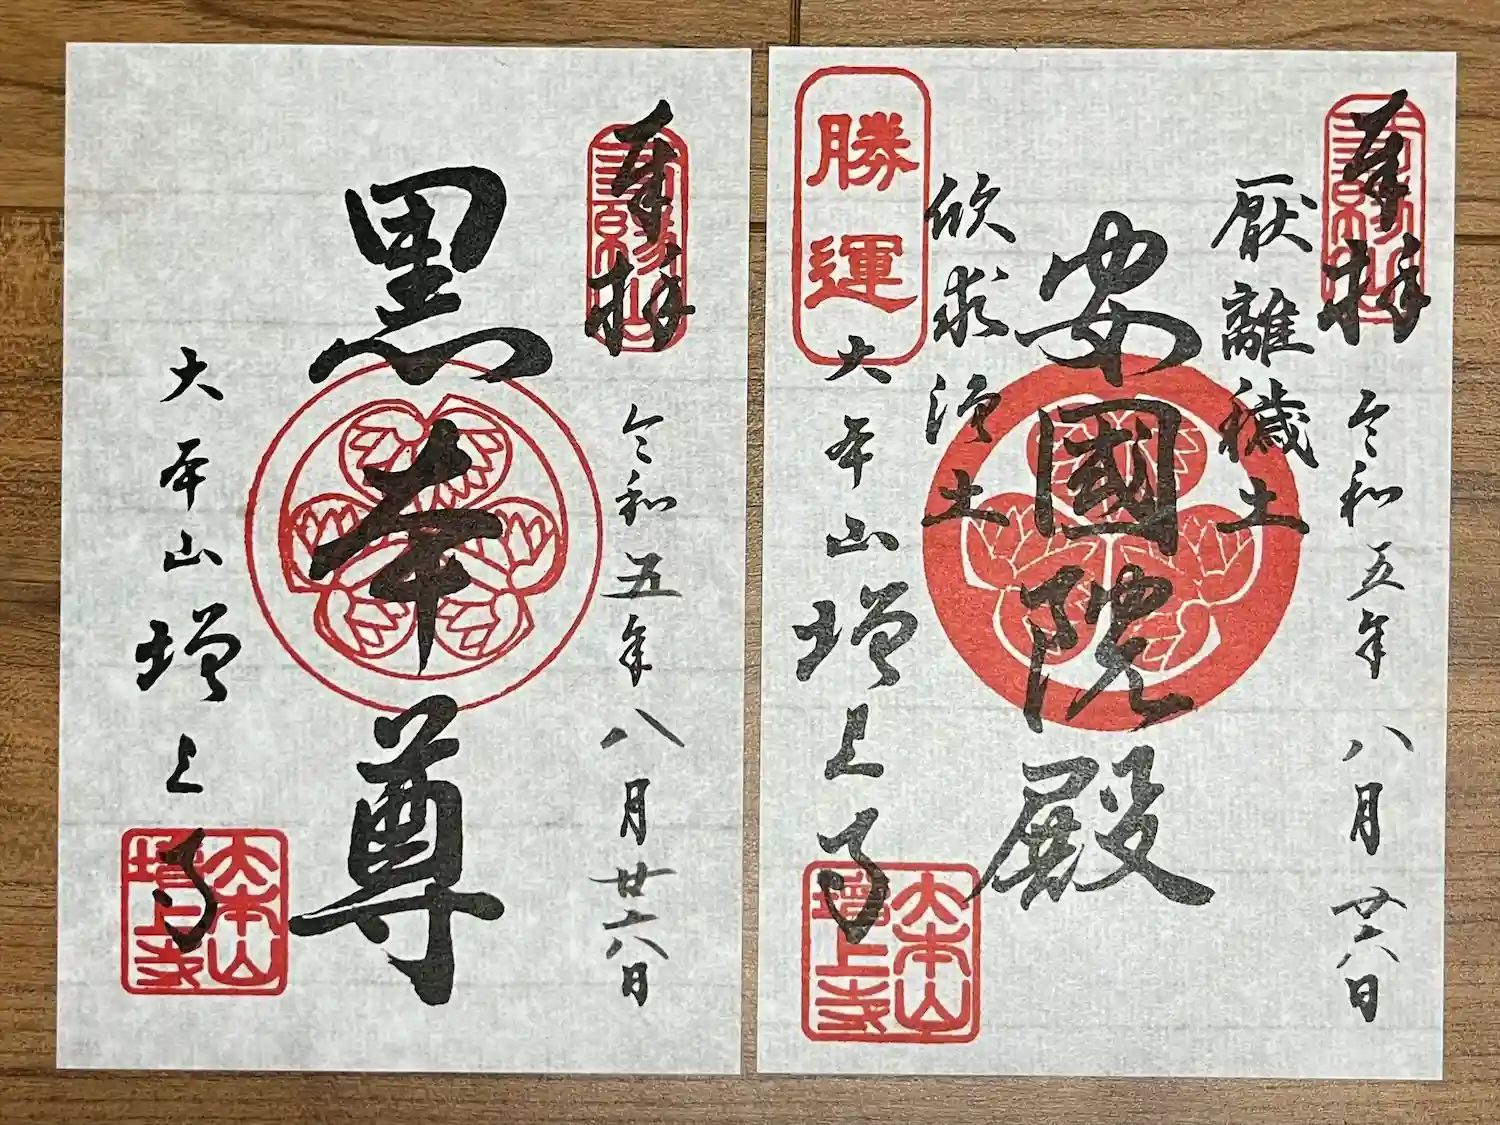 奉拝
三縁山
令和五年八月廿六日
黒本尊
大本山増上寺
大本山
増上寺
奉拝
三縁山
令和五年八月廿六日
厭離穢土
安國院殿
欣求浄土
勝運
大本山増上寺
大本山
増上寺